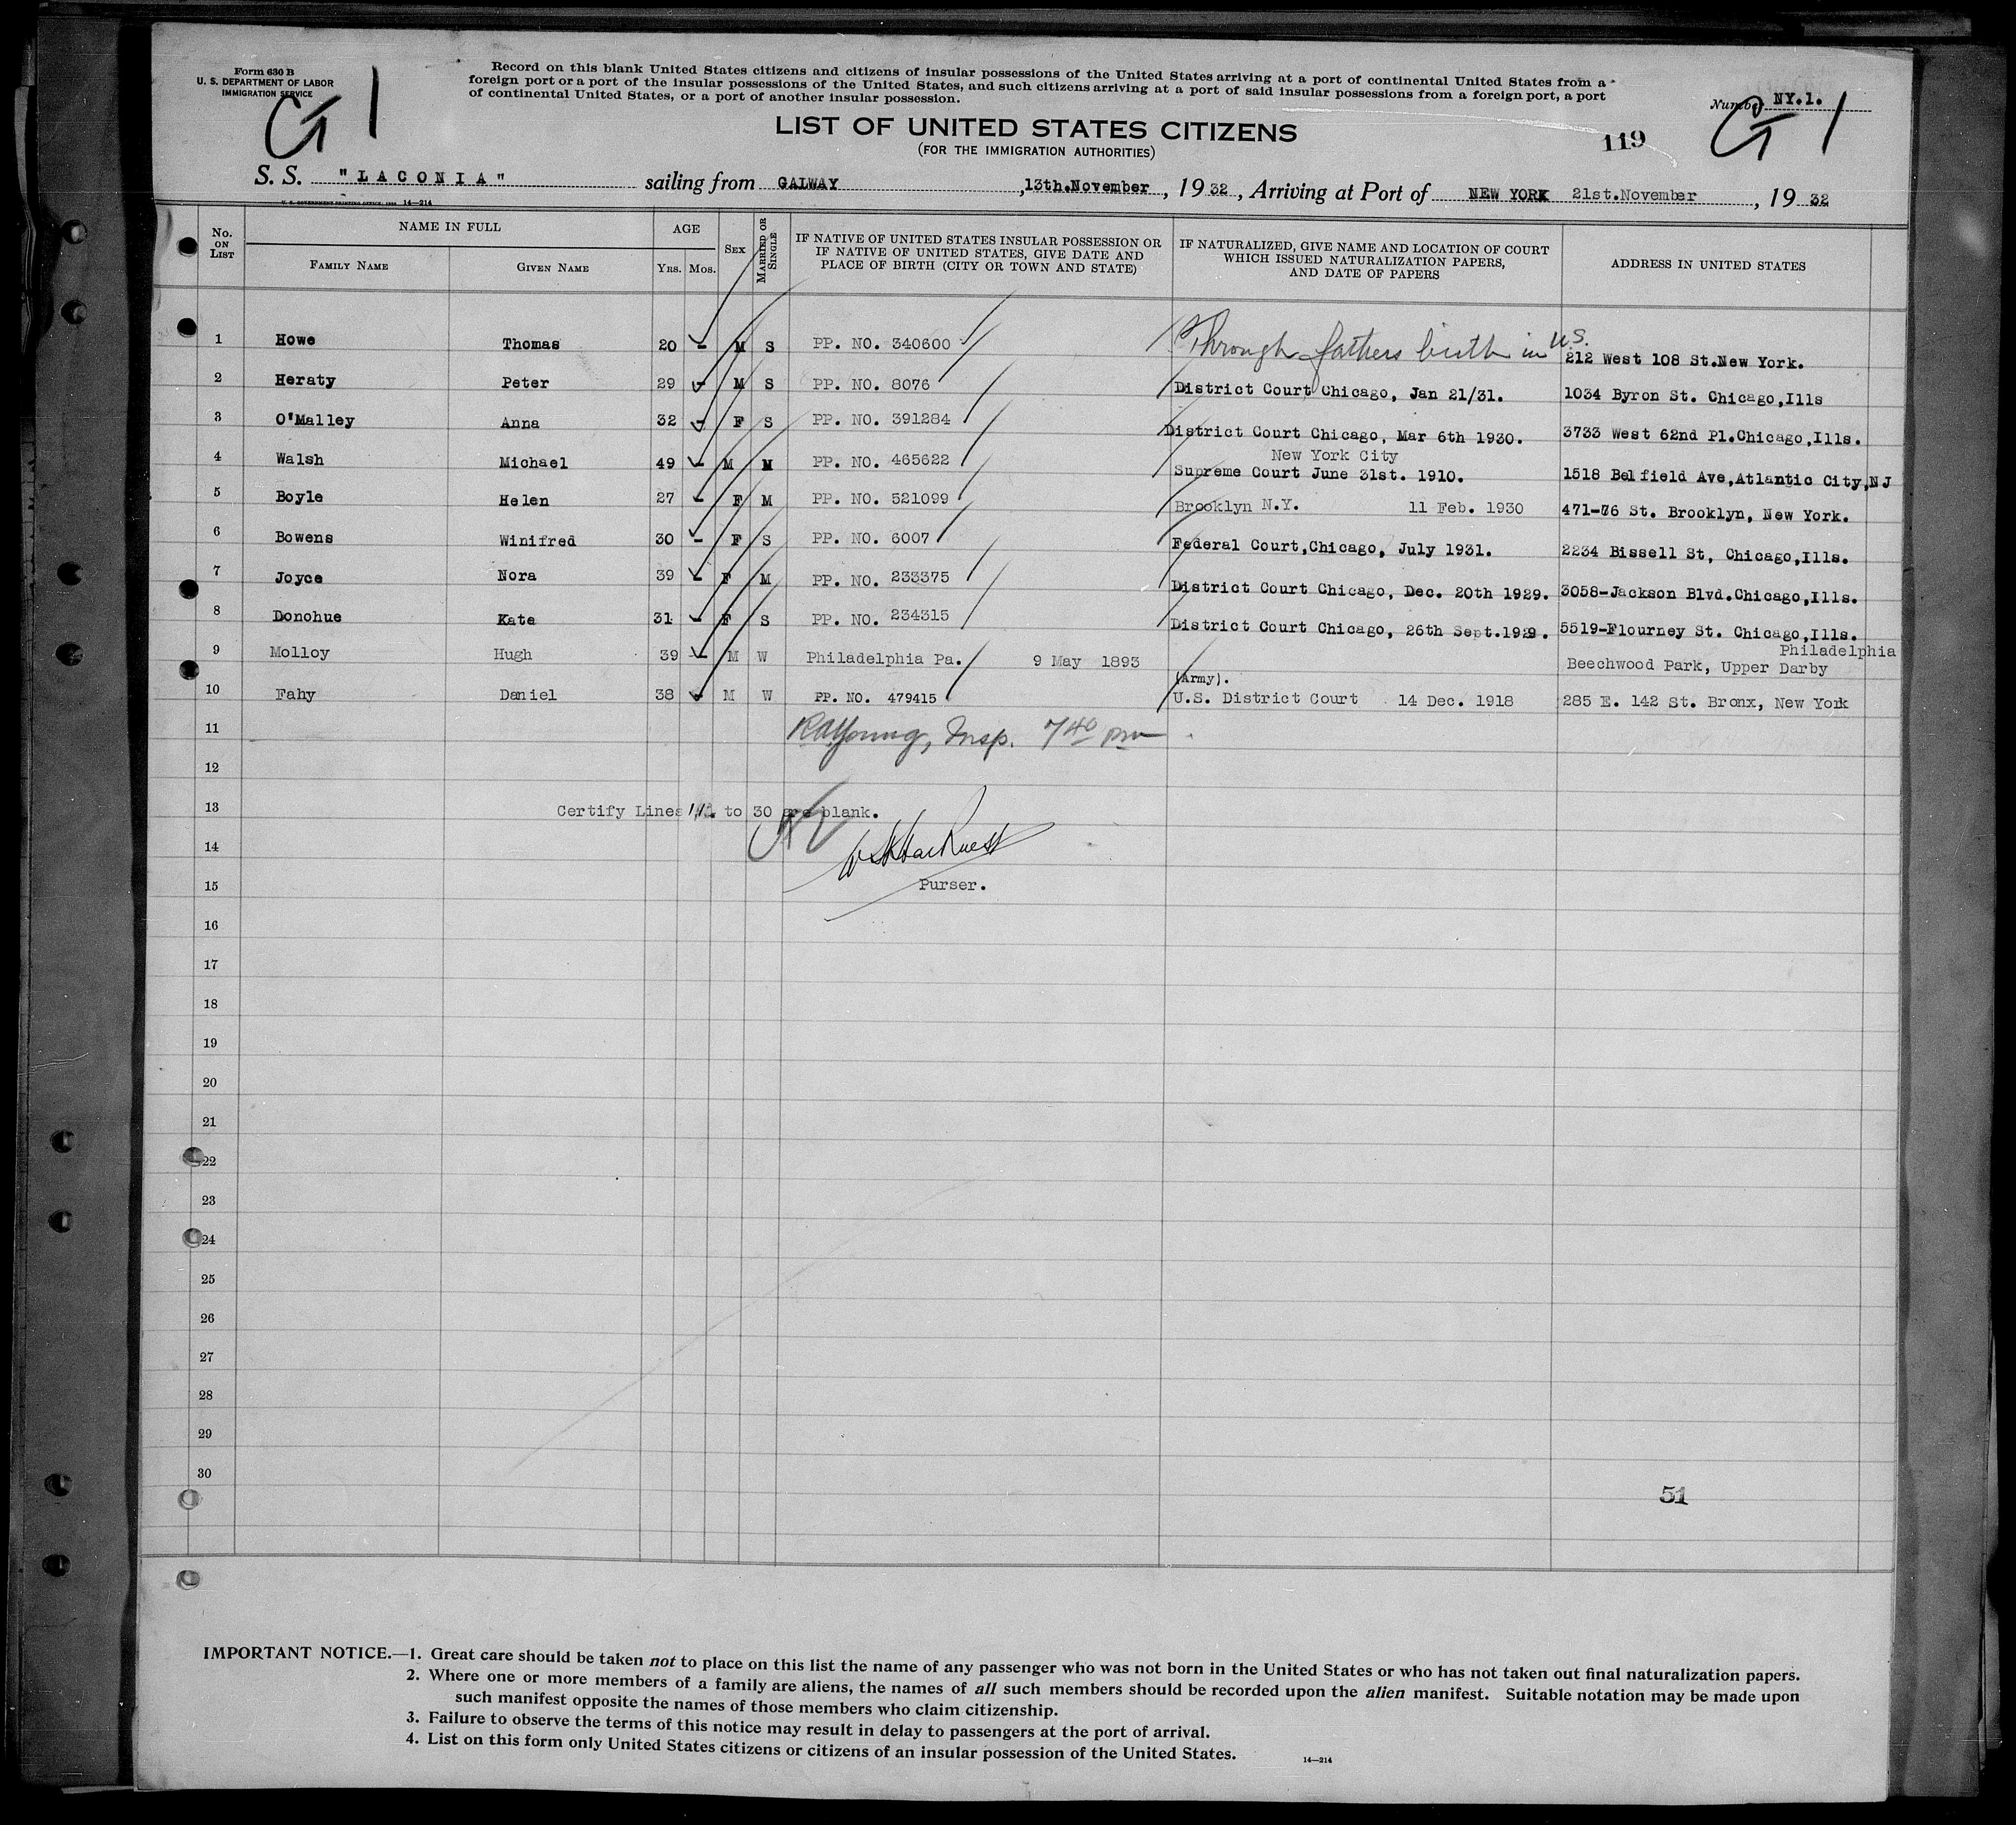 Form 630 B
U. S. DEPARTMENT OF LABOR
IMMIGRATION SERVICE
G 1
Record on this blank United States citizens and citizens of insular possessions of the United States arriving at a port of continental United States from a
foreign port or a port of the insular possessions of the United States, and such citizens arriving at a port of said insular possessions from a foreign port, a port
of continental United States, or a port of another insular possession.
Number NY.1.
G 1
LIST OF UNITED STATES CITIZENS
(FOR THE IMMIGRATION AUTHORITIES)
119
S. S. "LACONIA" sailing from GALWAY ,13th.November, 1932, Arriving at Port of NEW YORK 21st.November, 1932
U. S. GOVERNMENT PRINTING OFFICE: 14—214
No. ON LIST NAME IN FULL FAMILY NAME GIVEN NAME AGE YRS. MOS. SEX MARRIED OR SINGLE IF NATIVE OF UNITED STATES INSULAR POSSESSION OR IF NATIVE OF UNITED STATES, GIVE DATE AND PLACE OF BIRTH (CITY OR TOWN AND STATE) IF NATURALIZED, GIVE NAME AND LOCATION OF COURT WHICH ISSUED NATURALIZATION PAPERS, AND DATE OF PAPERS ADDRESS IN UNITED STATES
1 Howe Thomas 20 - M S PP. NO. 340600 Through fathers birth in U.S. 212 West 108 St.New York.
2 Heraty Peter 29 - M S PP. NO. 8076 District Court Chicago, Jan 21/31. 1034 Byron St. Chicago,Ills
3 O'Malley Anna 32 - F S PP. NO. 391284 District Court Chicago, Mar 6th 1930. 3733 West 62nd Pl.Chicago,Ills.
New York City
4 Walsh Michael 49 - M M PP. NO. 465622 Supreme Court June 31st. 1910. 1518 Belfield Ave,Atlantic City,NJ
5 Boyle Helen 27 - F M PP. NO. 521099 Brooklyn N.Y. 11 Feb. 1930 471-76 St. Brooklyn, New York.
6 Bowens Winifred 30 - F S PP. NO. 6007 Federal Court,Chicago, July 1931. 2234 Bissell St, Chicago,Ills.
7 Joyce Nora 39 - F M PP. NO. 233375 District Court Chicago, Dec. 20th 1929. 3058-Jackson Blvd.Chicago,Ills.
8 Donohue Kate 31 - F S PP. NO. 234315 District Court Chicago, 26th Sept.1929. 5519-Flourney St. Chicago,Ills.
Philadelphia
9 Molloy Hugh 39 - M W Philadelphia Pa. 9 May 1893 Beechwood Park, Upper Darby
(Army).
10 Fahy Daniel 38 - M W PP. NO. 479415 U.S. District Court 14 Dec. 1918 285 E. 142 St. Bronx, New York
11 RAYoung, Insp. 7 40 pm
12
13 Certify Lines 11 to 30 are blank.
14
15 Purser.
16
17
18
19
20
21
22
23
24
25
26
27
28
29
30
51
IMPORTANT NOTICE.—1. Great care should be taken not to place on this list the name of any passenger who was not born in the United States or who has not taken out final naturalization papers.
2. Where one or more members of a family are aliens, the names of all such members should be recorded upon the alien manifest. Suitable notation may be made upon
such manifest opposite the names of those members who claim citizenship.
3. Failure to observe the terms of this notice may result in delay to passengers at the port of arrival.
4. List on this form only United States citizens or citizens of an insular possession of the United States.
14—214